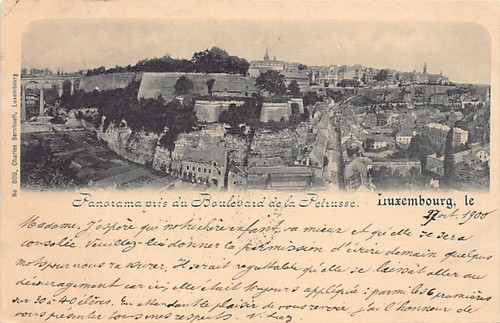 No 200, Charles Bernhoeft, Luxembourg
Panorama pris du Boulevard de la Petrusse.
Luxembourg, le
Août 1900
Madame, j'espère que notre chère enfant va mieux et qu'elle se sera
consolée. Veuillez lui donner la permission d'écrire demain quelques
mots pour nous rassurer. Il serait regrettable qu'elle se laissât aller au
découragement car ici elle était toujours appliquée: parmi les 6 premières
sur 30 à 40 élèves. En attendant le plaisir de vous revoir j'ai l'honneur de
vous présenter tous mes respects.